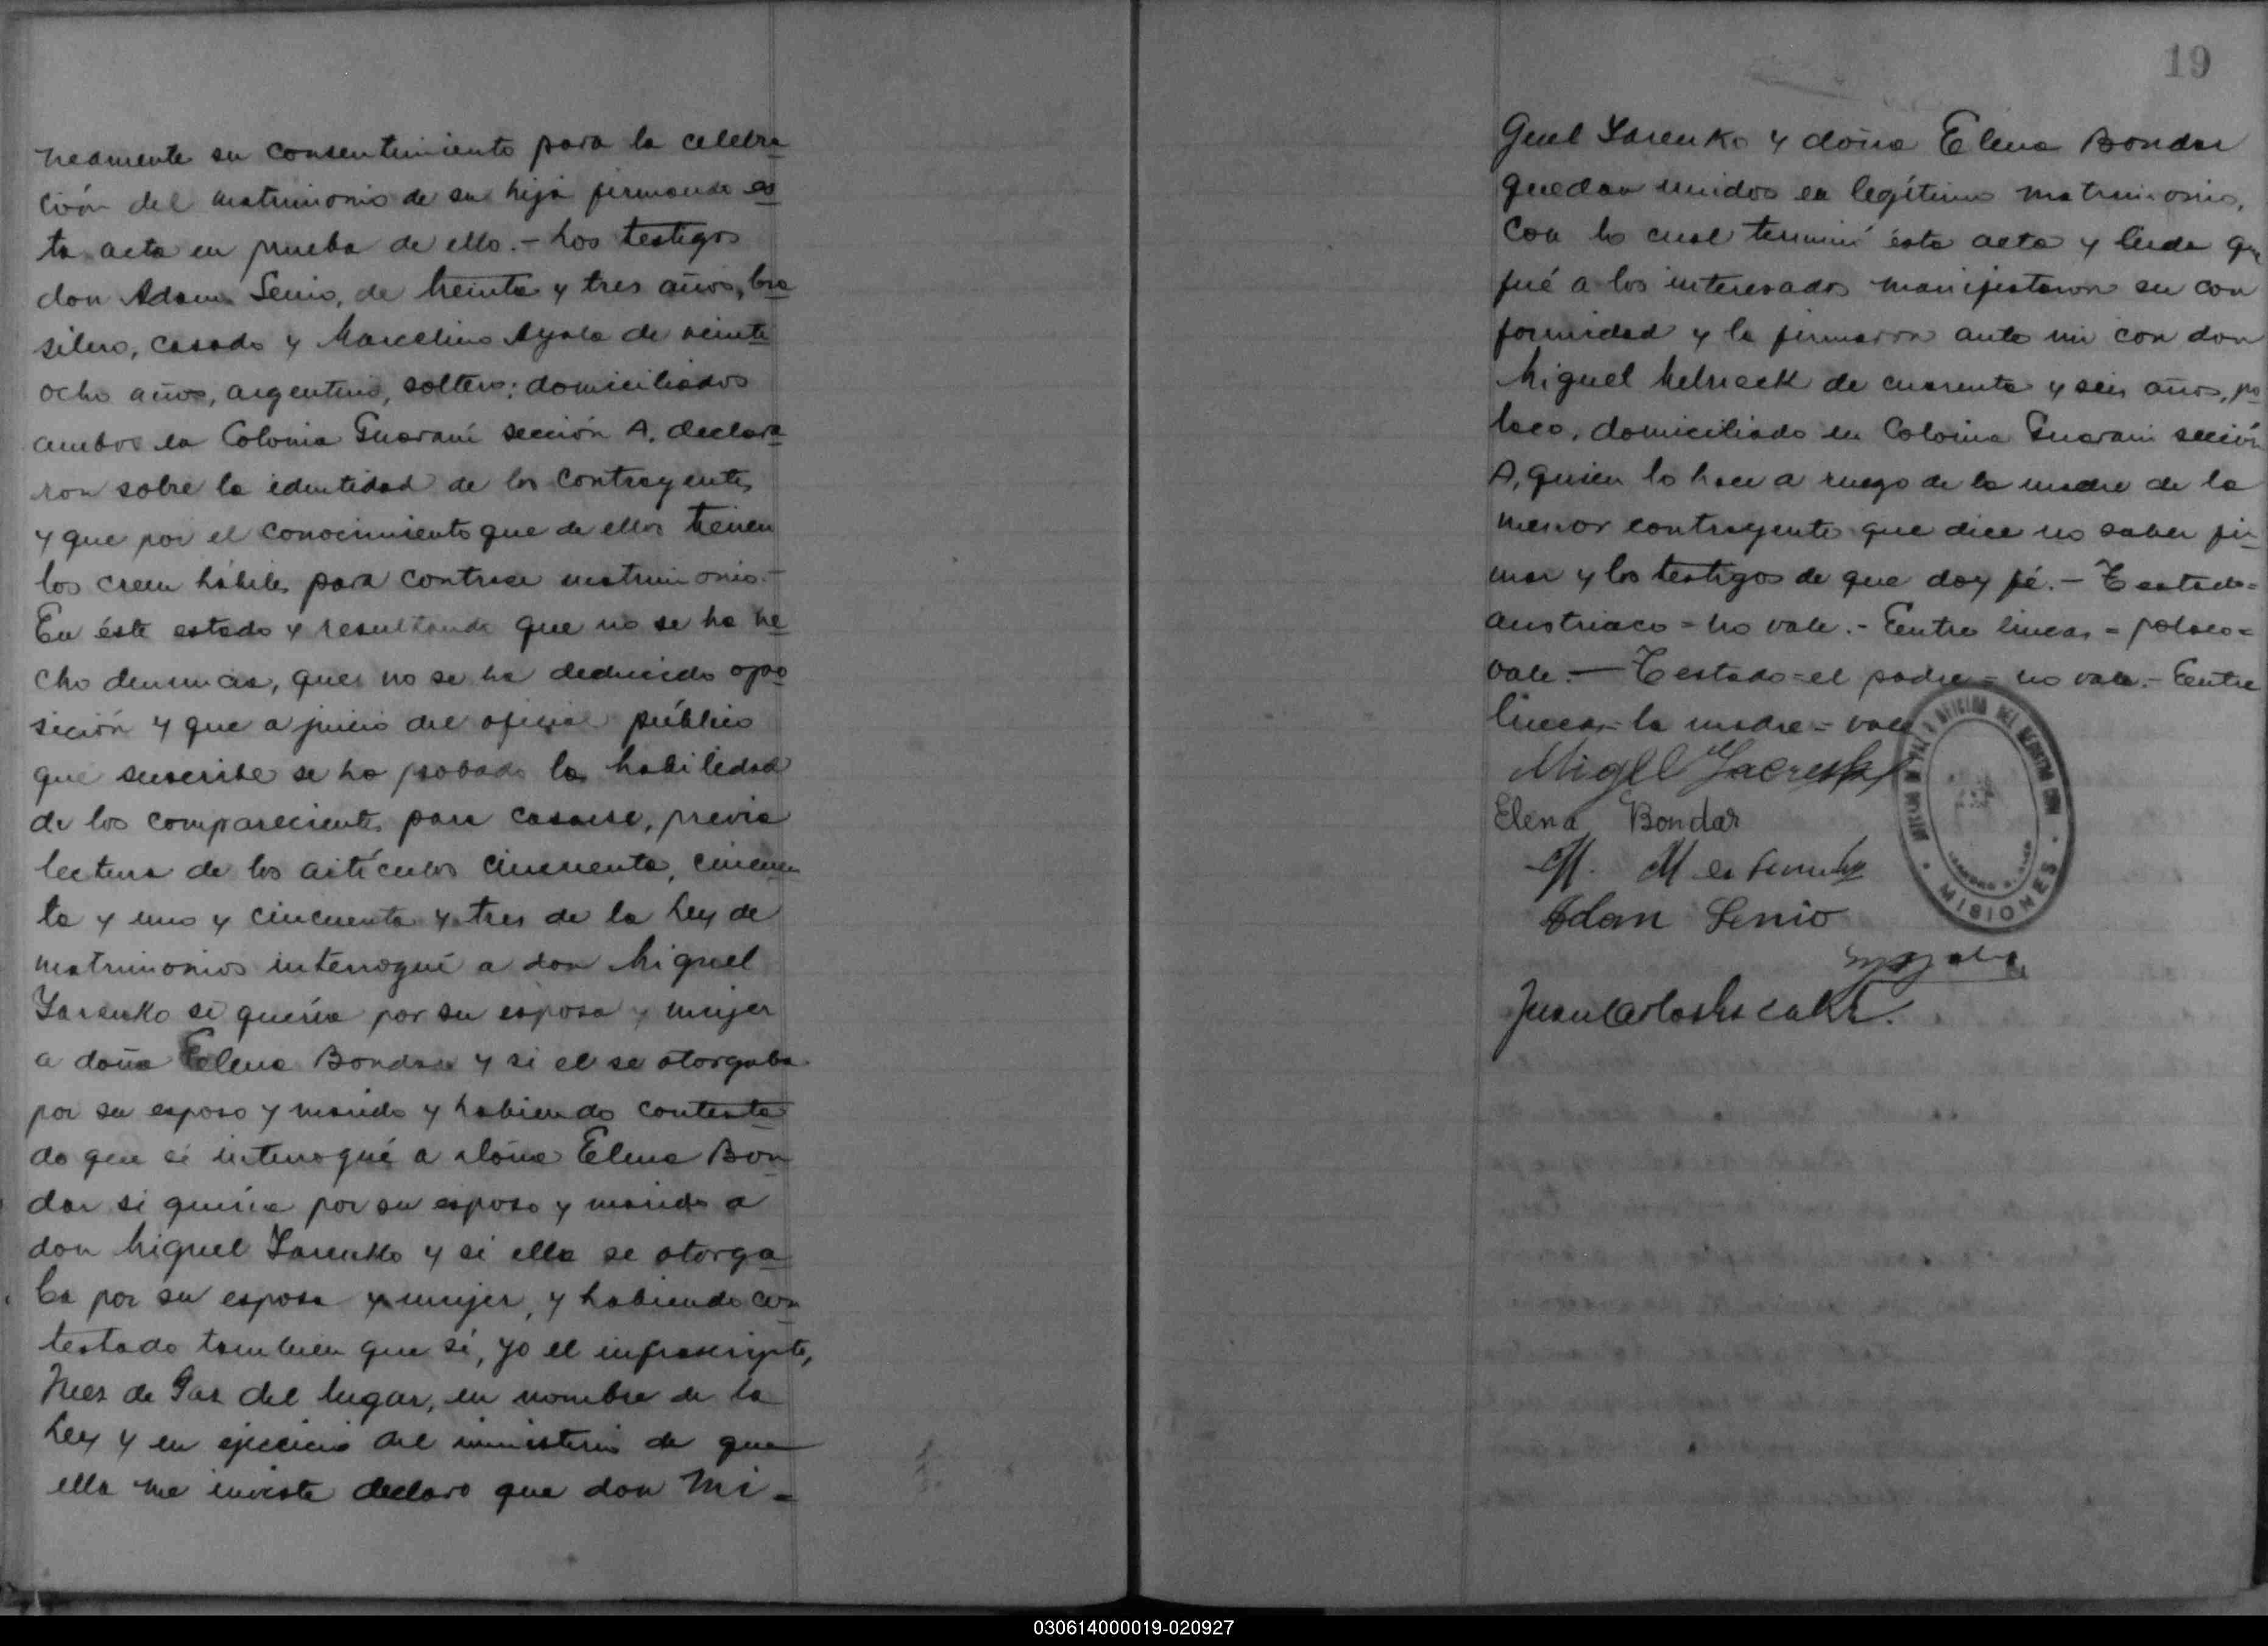 neamente su consentimiento para la celebra
ción del matrimonio de su hija firmando es
ta acta en prueba de ello.- Los testigos
don Adam Senio, de treinta y tres años, bra
silero, casado y Marcelino Ayala de veinte
ocho años, argentino, soltero; domiciliados
ambos en Colonia Guaraní sección A, declara
ron sobre la identidad de los contrayentes
y que por el conocimiento que de ellos tienen
los creen hábiles para contraer matrimonio.-
En éste estado y resultando que no se ha he
cho denuncia, que no se ha deducido opo
sición y que a juicio del oficial público
que suscribe se ha probado la habilidad
de los comparecientes para casarse, previa
lectura de los artículos cincuenta, cincuen
ta y uno y cincuenta y tres de la Ley de
matrimonios interrogué a don Miguel
Yarenko si quería por su esposa y mujer
a doña Elena Bondar y si el se otorgaba
por su esposo y marido y habiendo contesta
do que si interrogué a doña Elena Bon
dar si quería por su esposo y marido a
don Miguel Yarenko y si ella se otorga
ba por su esposa y mujer, y habiendo con
testado tambien que sí, yo el infrascripto,
Juez de Paz del lugar, en nombre de la
Ley y en ejercicio del ministerio de que
ella me inviste declaro que don Mi-
19
guel Yarenko y doña Elena Bondar
quedan unidos en legítimo matrimonio,
con lo cual terminó ésta acta y leida que
fué a los interesados manifestaron su con
formidad y la firmaron ante mi con don
Miguel de cuarenta y seis años, po
laco, domiciliado en Colonia Guaraní sección
A, quien lo hace a ruego de la madre de la
menor contrayente que dice no saber fir
mar y los testigos de que doy fé.- Testado=
austriaco = no vale.- Entre lineas = polaco=
vale.- Testado=el padre = no vale.- Entre
lineas=la madre=vale
Migel
Elena Bondar
M.
Adam Senio
Juan Carlos
MISIONES
030614000019-020927